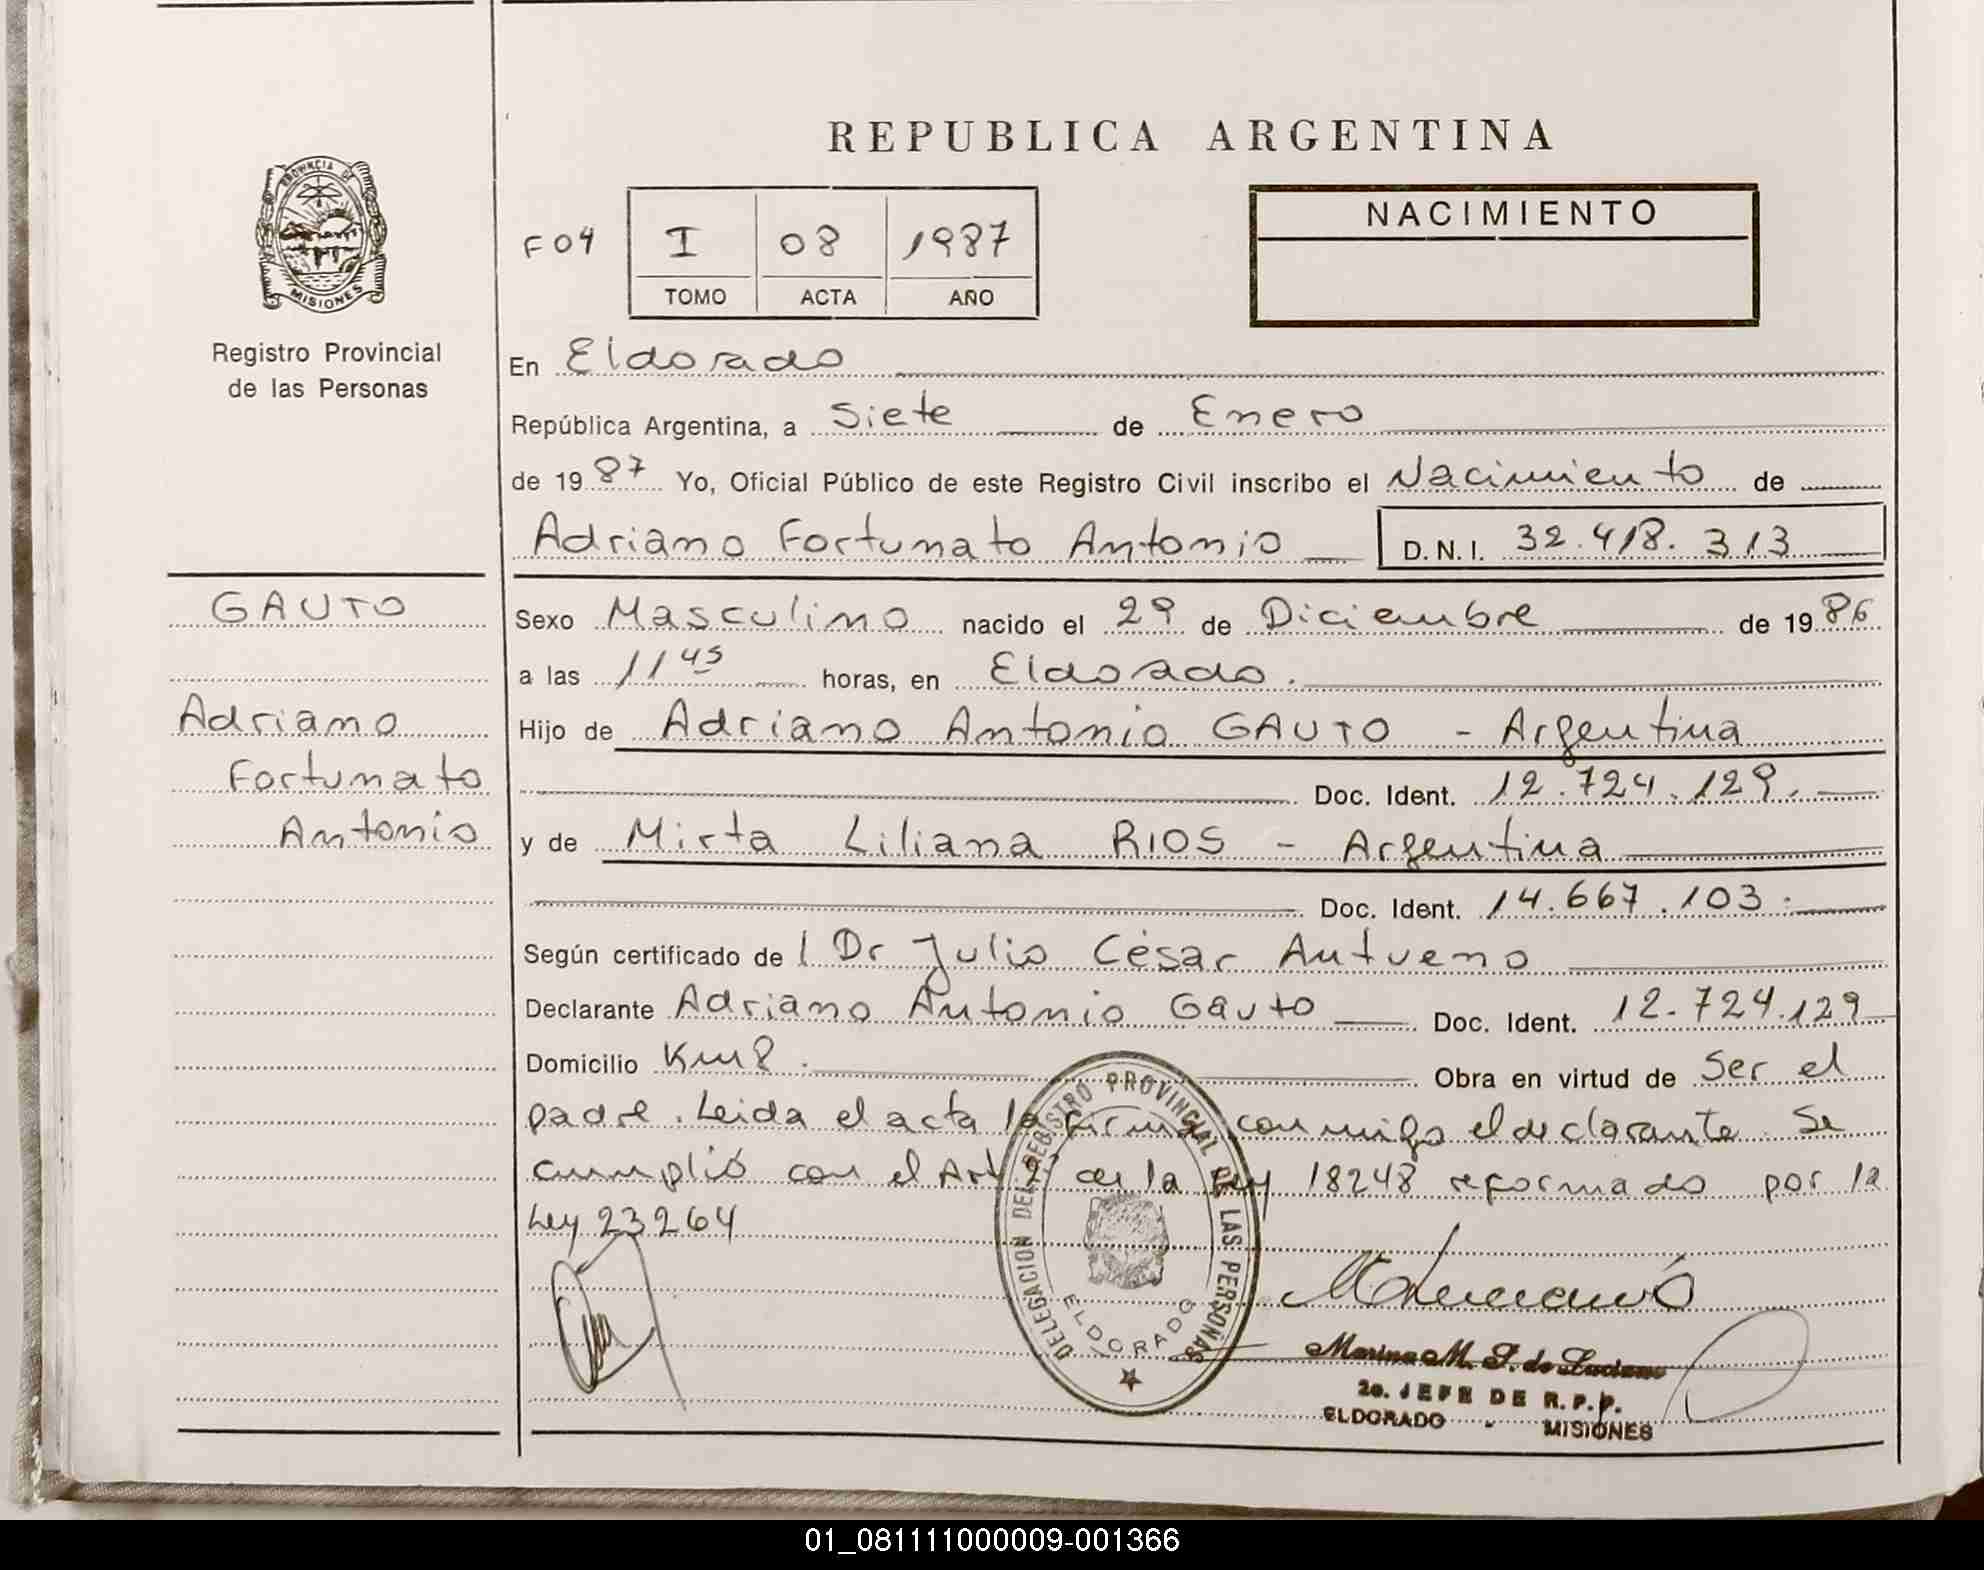 REPUBLICA ARGENTINA
PROVINCIA DE
MISIONES
Registro Provincial
de las Personas
F 04 I 08 1987
TOMO ACTA AÑO
NACIMIENTO
En Eldorado
República Argentina, a Siete de Enero
de 1987 Yo, Oficial Público de este Registro Civil inscribo el Nacimiento de
Adriano Fortunato Antonio D.N.I. 32.418.313
GAUTO
Adriano
Fortunato
Antonio
Sexo Masculino nacido el 29 de Diciembre de 1986
a las 11 45 horas, en Eldorado.
Hijo de Adriano Antonio GAUTO - Argentina
Doc. Ident. 12.724.129.
y de Mirta Liliana RIOS - Argentina
Doc. Ident. 14.667.103.
Según certificado de / Dr Julio César Antueno
Declarante Adriano Antonio Gauto Doc. Ident. 12.724.129
Domicilio Km 8. Obra en virtud de Ser el
padre. Leida el acta la firma conmigo el declarante. Se
cumplió con el Art 2° de la Ley 18248 reformado por la
Ley 23264
DELEGACION DEL REGISTRO PROVINCIAL DE LAS PERSONAS
ELDORADO
Marina M. P. de Luciano
2o. JEFE DE R.P.P.
ELDORADO - MISIONES
01_081111000009-001366